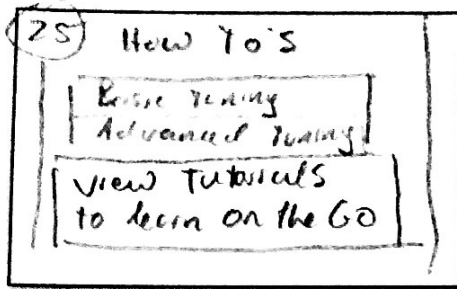 25
How To's
Basic Tuning
Advanced Tuning
View Tutorials
to learn on the GO